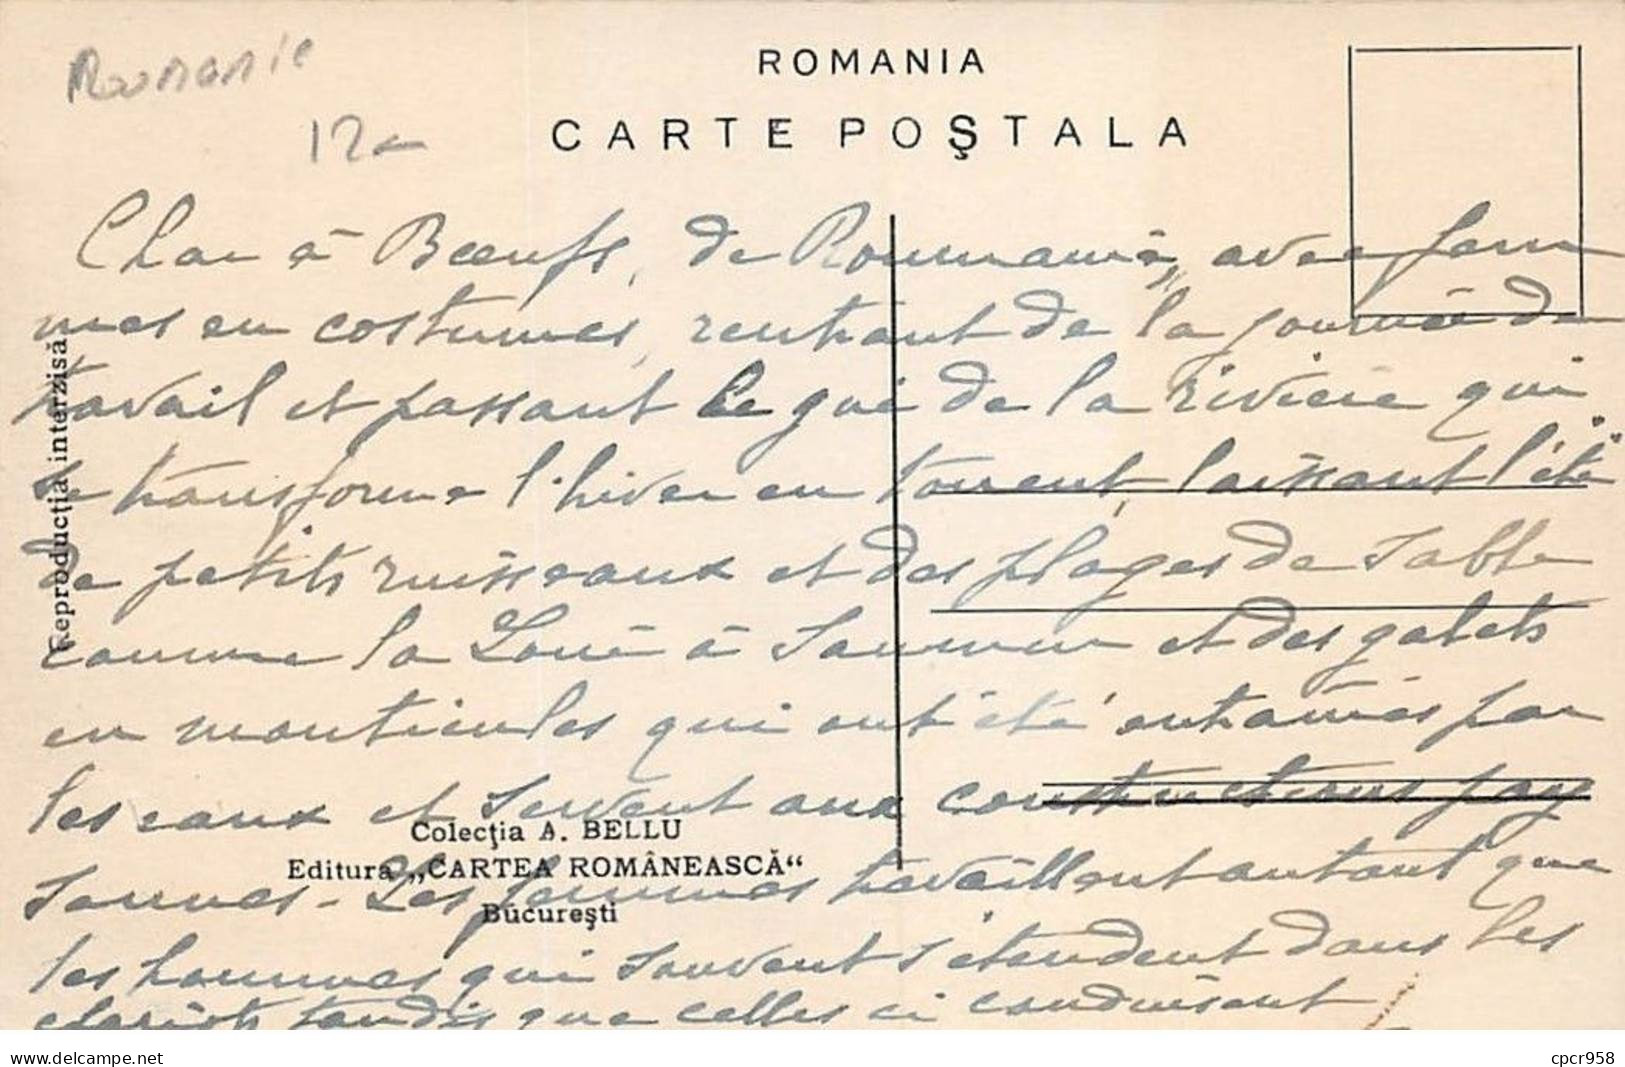 Roumanie
12
ROMANIA
CARTE POŞTALA
Char à Boeufs, de Roumanie, avec fem
mes en costumes, rentrant de la journée de
travail et passant le gué de la rivière qui
se transforme l'hiver en torrent, laissant l'été
de petits ruisseaux et des plages de sable
comme la Loire à Saumur et des galets
en monticules qui ont été entrainés par
les eaux et servent aux constructions pay
sannes - Les femmes travaillent autant que
les hommes qui souvent s'étendent dans les
chariots tandis que celles ci conduisent
Reproducţia interzisă
Colecţia A. BELLU
Editura „CARTEA ROMÂNEASCĂ“
Bucureşti
www.delcampe.net
cpcr958